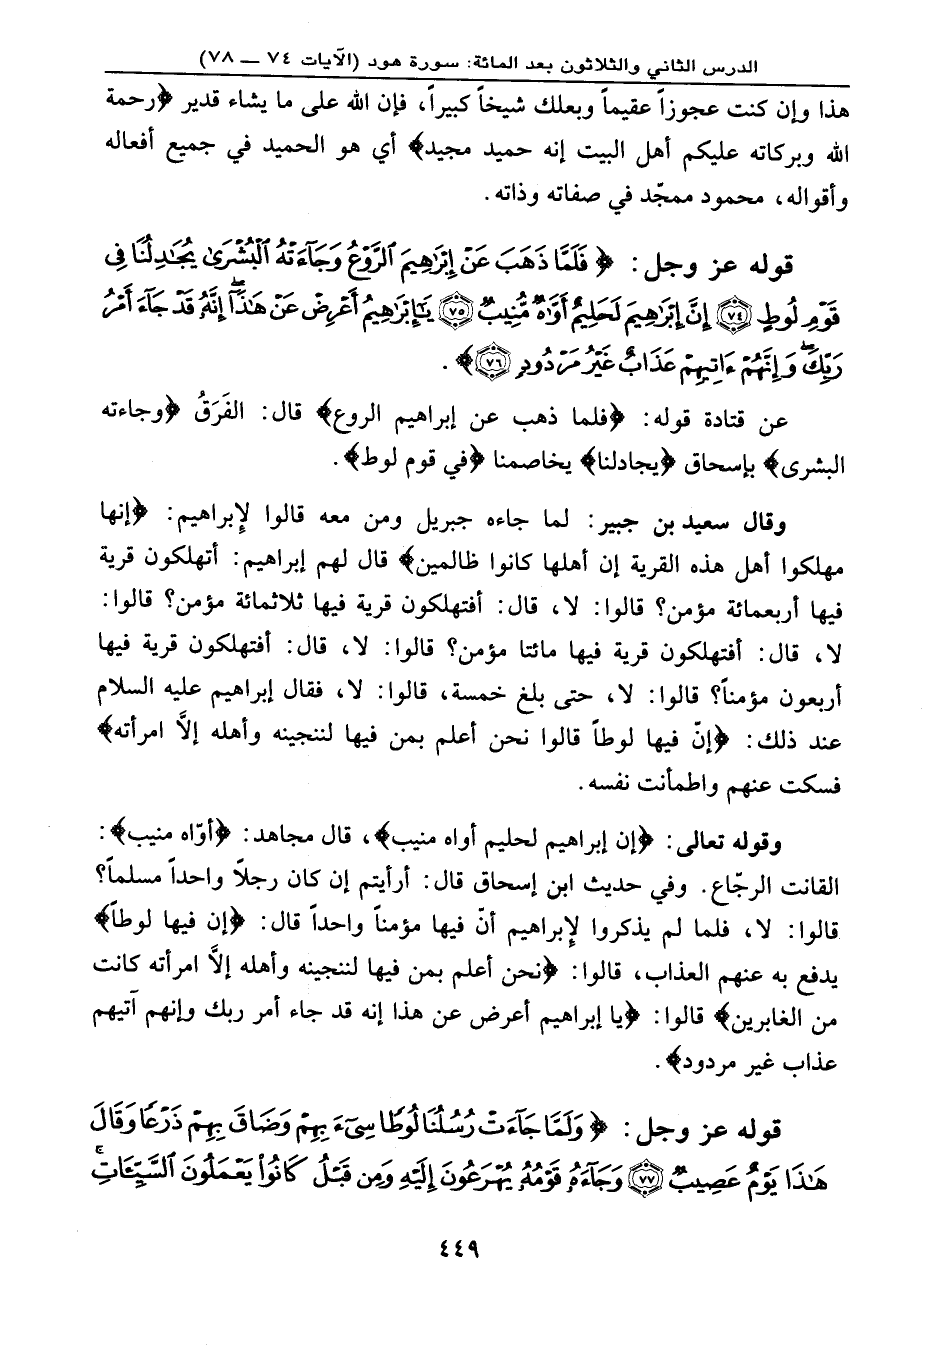 الدرس الثاني والثلاثون بعد المائة: سورة هود (الآيات ٧٤ ــ ٧٨)
هذا وإن كنت عجوزاً عقيماً وبعلك شيخاً كبيراً، فإن الله على ما يشاء قدير ﴿رحمة
الله وبركاته عليكم أهل البيت إنه حميد مجيد﴾ أي هو الحميد في جميع أفعاله
وأقواله، محمود ممجّد في صفاته وذاته.
قوله عز وجل: ﴿فَلَمَّا ذَهَبَ عَنْ إِبْرَاهِيمَ ٱلرَّوْعُ وَجَآءَتْهُ ٱلْبُشْرَىٰ يُجَٰدِلُنَا فِى
قَوْمِ لُوطٍ ٧٤ إِنَّ إِبْرَٰهِيمَ لَحَلِيمٌ أَوَّٰهٌ مُّنِيبٌ ٧٥ يَٰٓإِبْرَٰهِيمُ أَعْرِضْ عَنْ هَٰذَآ إِنَّهُۥ قَدْ جَآءَ أَمْرُ
رَبِّكَ وَإِنَّهُمْ ءَاتِيهِمْ عَذَابٌ غَيْرُ مَرْدُودٍ ٧٦﴾.
عن قتادة قوله: ﴿فلما ذهب عن إبراهيم الروع﴾ قال: الفَرَقُ ﴿وجاءته
البشرى﴾ بإسحاق ﴿يجادلنا﴾ يخاصمنا ﴿في قوم لوط﴾.
وقال سعيد بن جبير: لما جاءه جبريل ومن معه قالوا لإبراهيم: ﴿إنها
مهلكوا أهل هذه القرية إن أهلها كانوا ظالمين﴾ قال لهم إبراهيم: أتهلكون قرية
فيها أربعمائة مؤمن؟ قالوا: لا، قال: أفتهلكون قرية فيها ثلاثمائة مؤمن؟ قالوا:
لا، قال: أفتهلكون قرية فيها مائتا مؤمن؟ قالوا: لا، قال: أفتهلكون قرية فيها
أربعون مؤمناً؟ قالوا: لا، حتى بلغ خمسة، قالوا: لا، فقال إبراهيم عليه السلام
عند ذلك: ﴿إنّ فيها لوطاً قالوا نحن أعلم بمن فيها لننجينه وأهله إلاَّ امرأته﴾
فسكت عنهم واطمأنت نفسه.
وقوله تعالى: ﴿إن إبراهيم لحليم أواه منيب﴾، قال مجاهد: ﴿أوّاه منيب﴾:
القانت الرجّاع. وفي حديث ابن إسحاق قال: أرأيتم إن كان رجلاً واحداً مسلماً؟
قالوا: لا، فلما لم يذكروا لإبراهيم أنّ فيها مؤمناً واحداً قال: ﴿إن فيها لوطاً﴾
يدفع به عنهم العذاب، قالوا: ﴿نحن أعلم بمن فيها لننجينه وأهله إلاَّ امرأته كانت
من الغابرين﴾ قالوا: ﴿يا إبراهيم أعرض عن هذا إنه قد جاء أمر ربك وإنهم آتيهم
عذاب غير مردود﴾.
قوله عز وجل: ﴿وَلَمَّا جَآءَتْ رُسُلُنَا لُوطًا سِىٓءَ بِهِمْ وَضَاقَ بِهِمْ ذَرْعًا وَقَالَ
هَٰذَا يَوْمٌ عَصِيبٌ ٧٧ وَجَآءَهُۥ قَوْمُهُۥ يُهْرَعُونَ إِلَيْهِ وَمِن قَبْلُ كَانُوا۟ يَعْمَلُونَ ٱلسَّيِّـَٔاتِ ۚ
٤٤٩